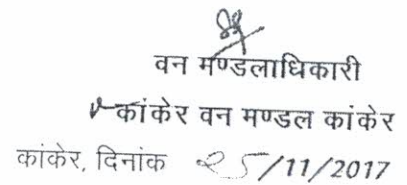 वन मण्डलाधिकारी
कांकेर वन मण्डल कांकेर
कांकेर, दिनांक 25/11/2017